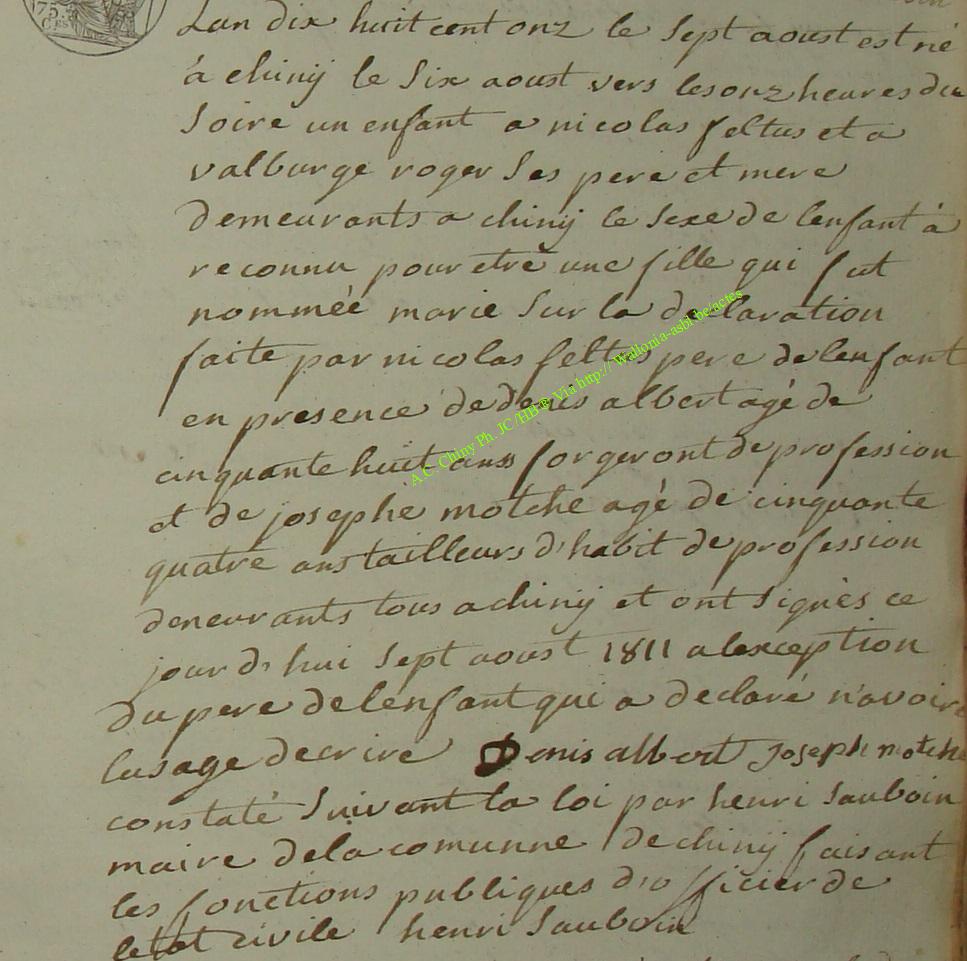 75.
CES
Lan dix huit cent onz le sept aoust est né
à chinij le six aoust vers lesonz heures du
soire un enfant a nicolas feltus et a
valburge roger ses pere et mere
demeurants a chinij le sexe de lenfant à
reconnu pour etre une fille qui fut
nommée marie sur la declaration
faite par nicolas feltus pere de lenfant
en presence de denis albert agé de
cinquante huit anss forgeront de profession
et de josephe motche agé de cinquante
quatre ans tailleurs d'habit de profession
deneurants tous a chinij et ont signés ce
jourd'hui sept aoust 1811 a lexception
du pere de lenfant qui a declaré n'avoire
lusage decrire Denis albert Joseph motche
constaté suivant la loi par henri sauboin
maire dela comunne de chinij faisant
les fonctions publiques d'officier de
letat civile henri sauboin
A.C. Chiny Ph. JC/HB ® Via http://Wallonia-asbl.be/actes